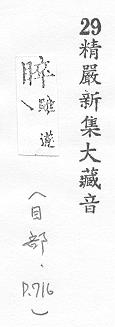 29精嚴新集大藏音
睟雖遂
(目部、P.716)